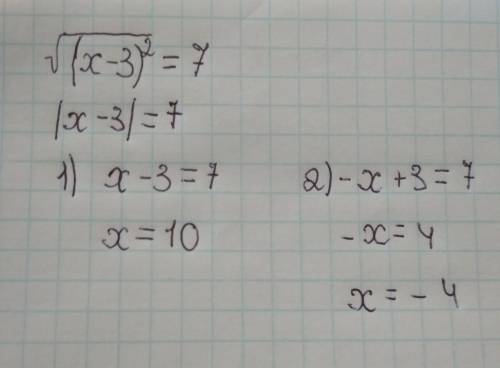 √(x-3)² = 7
|x-3| = 7
1) x-3=7
x=10
2) -x+3=7
-x=4
x=-4